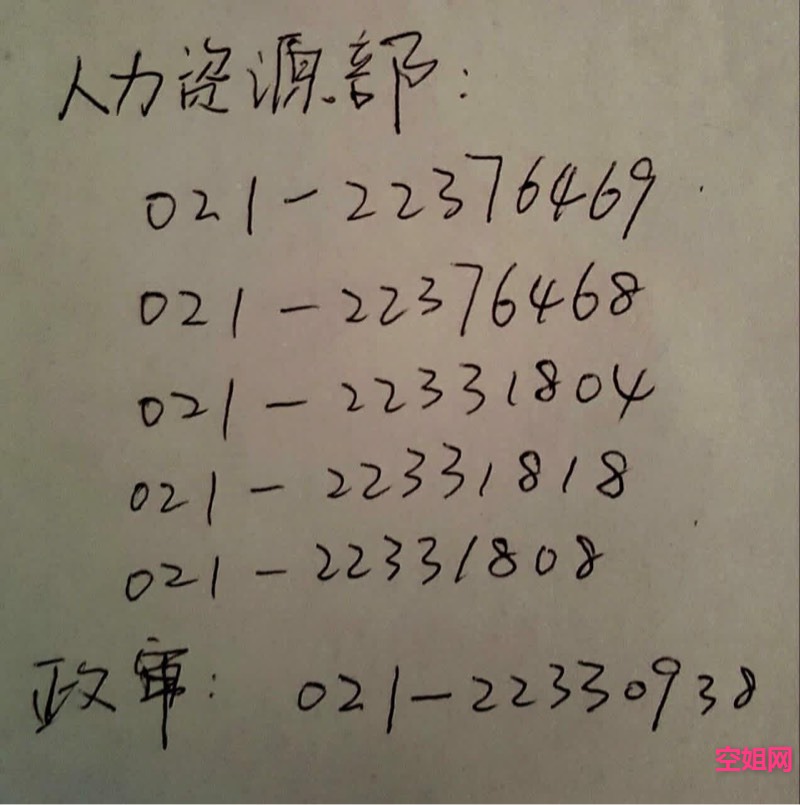 人力资源部：
021-22376469
021-22376468
021-22331804
021-22331818
021-22331808
政审：021-22330938
空姐网